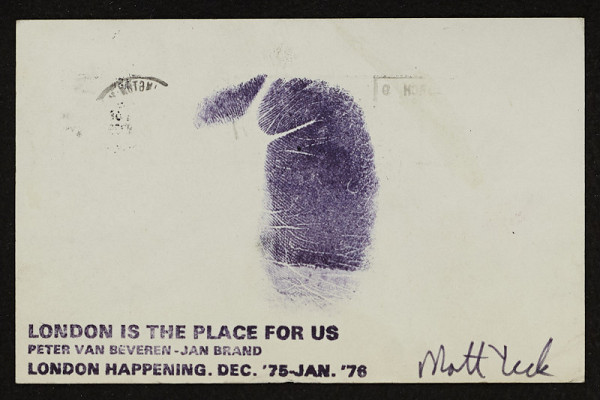 LONDON IS THE PLACE FOR US
PETER VAN BEVEREN-JAN BRAND
LONDON HAPPENING. DEC. '75-JAN. '76
Matt